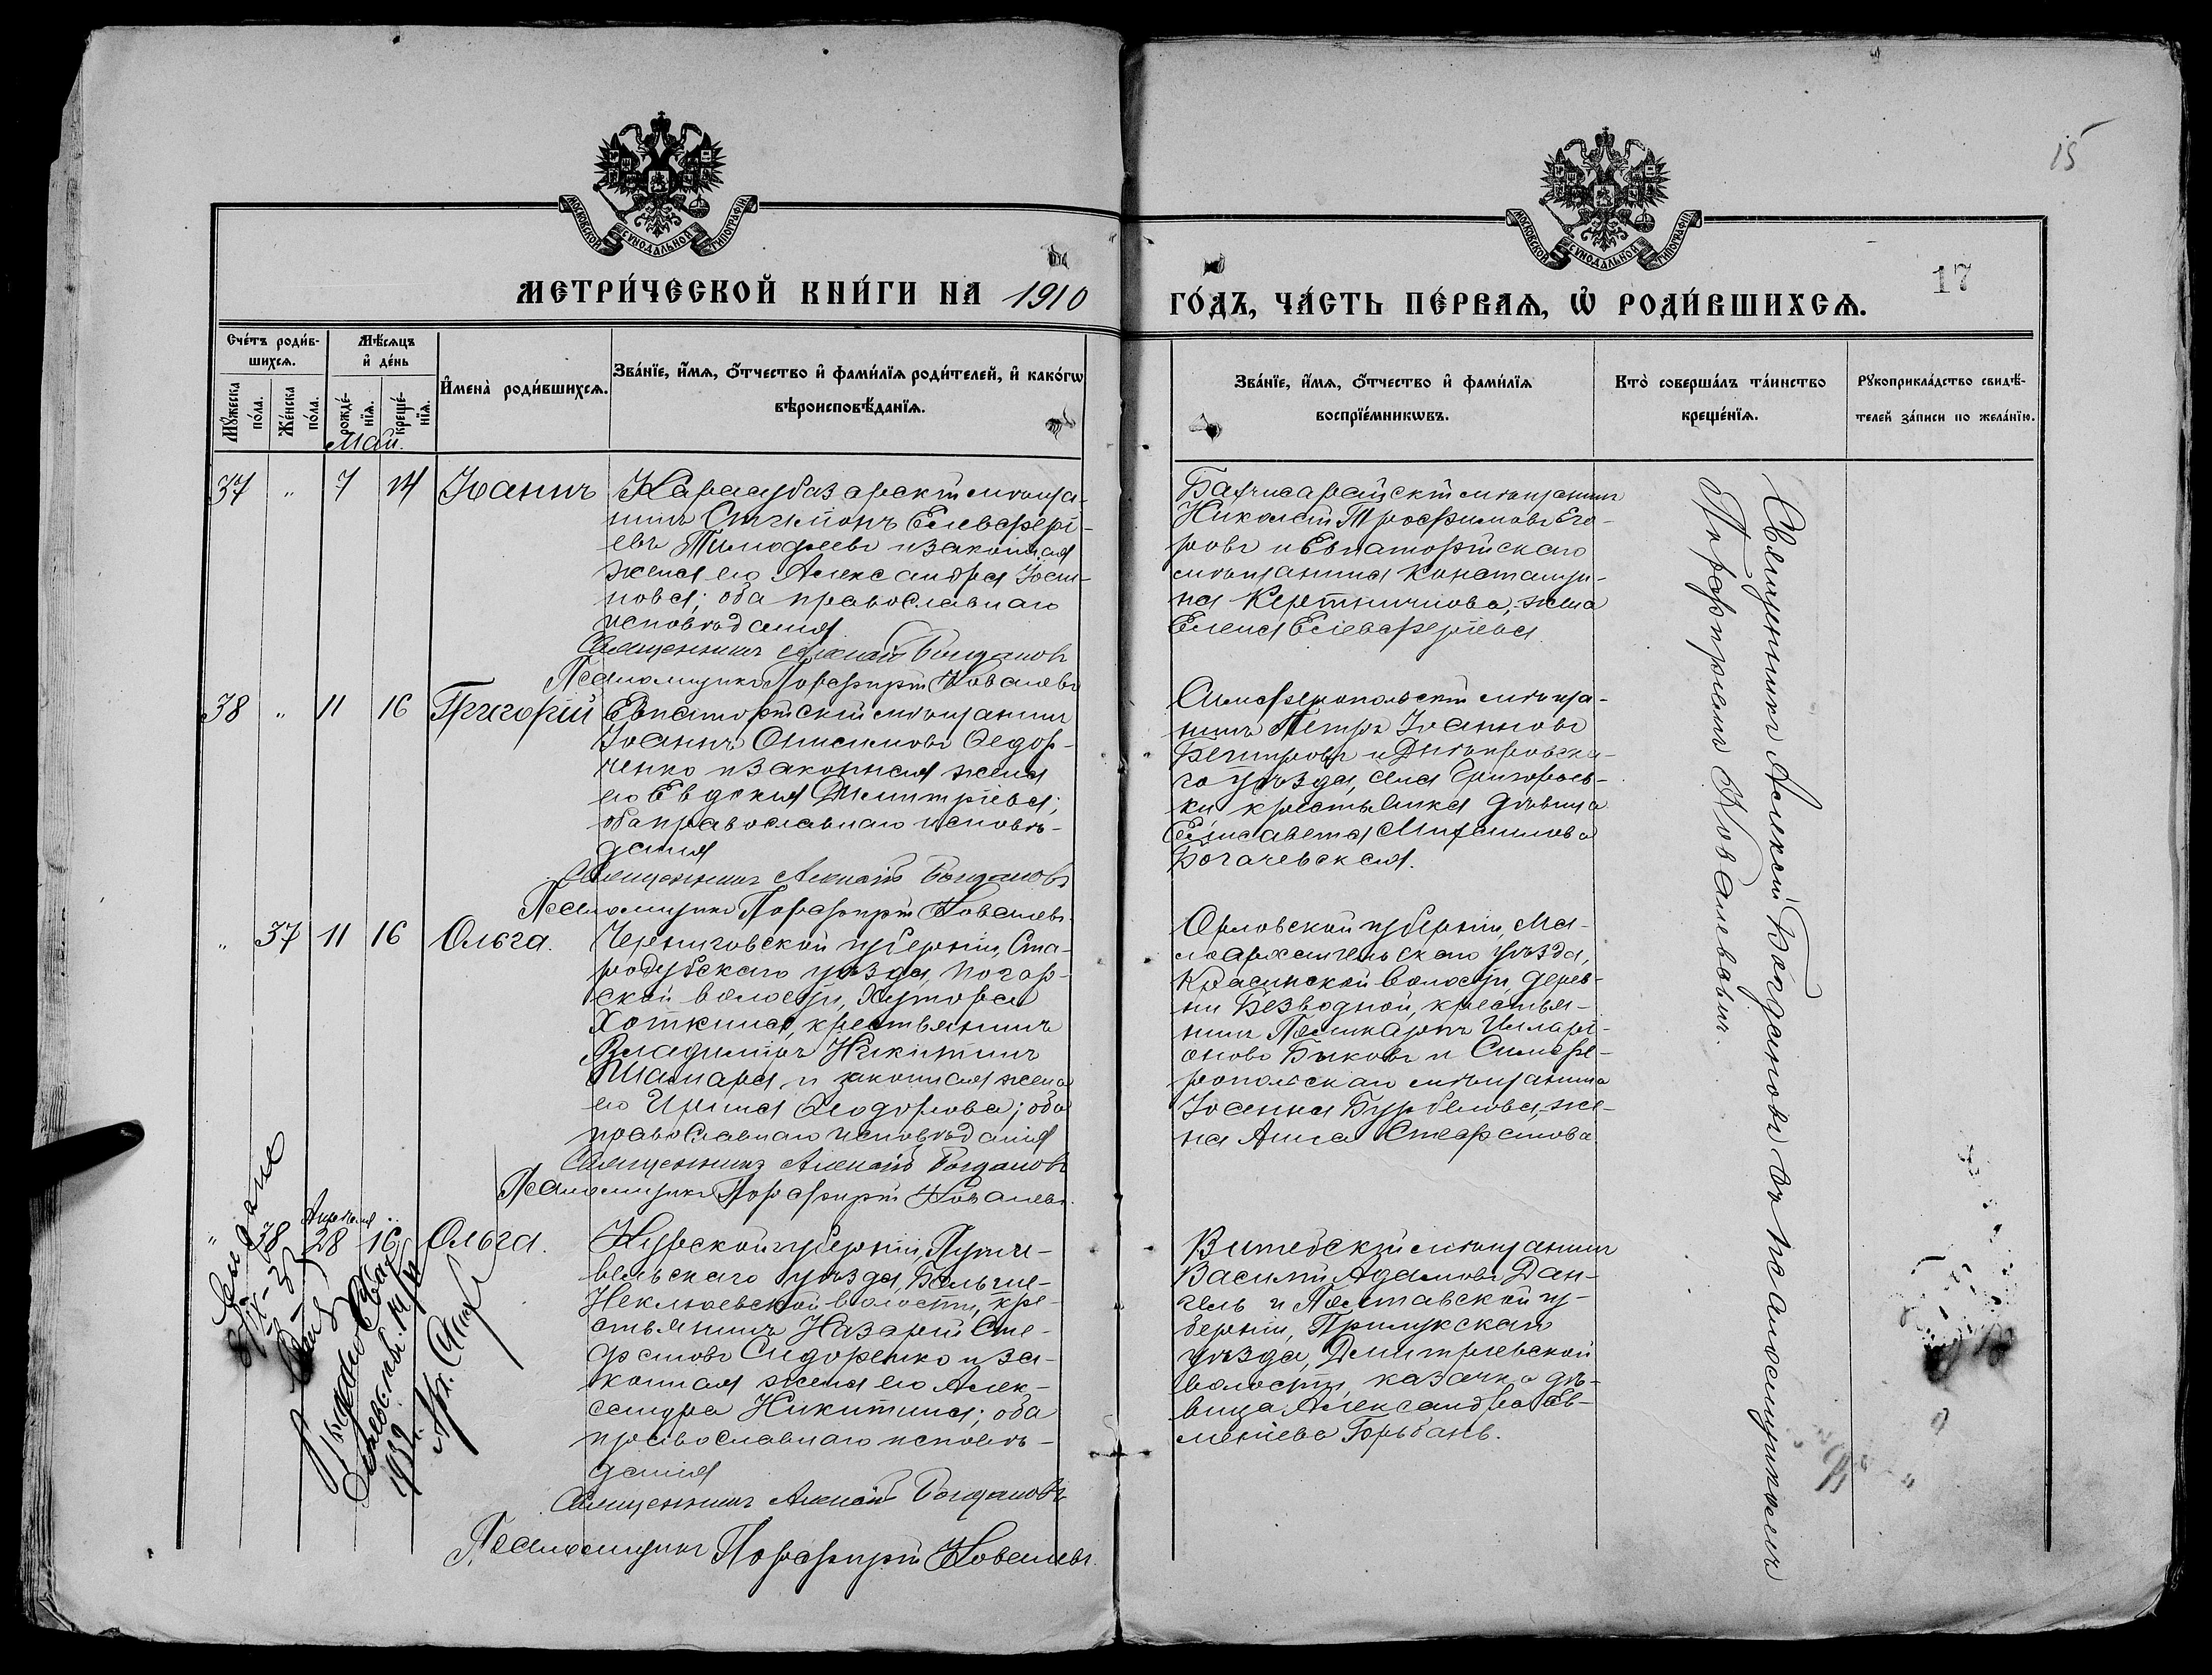 15
17
МОСКОВСКОЙ СѴНОДАЛЬНОЙ ТИПОГРАФІИ
МОСКОВСКОЙ СѴНОДАЛЬНОЙ ТИПОГРАФІИ
МЕТРИ́ЧЕСКОЙ КНИ́ГИ НА 1910
ГО́ДЪ, ЧА́СТЬ ПЕ́РВАѦ, Ѡ҆ РОДИ́ВШИХСѦ.
Сче́тъ роди́в-
шихсѧ.
Мꙋ́жеска по́ла.
Же́нска по́ла.
Мѣ́сѧцъ
и҆ де́нь
рожде́-
нїѧ.
креще́-
нїѧ.
И҆мена̀ роди́вшихсѧ.
Зва́нїе, и҆́мѧ, ѻ҆́тчество и҆ фами́лїѧ роди́телей, и҆ како́гѡ
вѣроисповѣ́данїѧ.
Зва́нїе, и҆́мѧ, ѻ҆́тчество и҆ фами́лїѧ
воспрїе́мникѡвъ.
Кто̀ соверша́лъ та́инство
креще́нїѧ.
Рꙋкоприкла́дство свидѣ́-
телей за́писи по жела́нїю.
Май.
37 " 7 14 Іоаннъ
Карасубазарскій мѣща-
нинъ Стилионъ Елевфері-
евъ Тимофеевъ и законная
жена его Александра Іоан-
нова; оба православнаго
исповѣданія
Священникъ Алексій Богдановъ
Псаломщикъ Порфирій Ковалевъ
Бахчисарайскій мѣщанинъ
Николай Трофимовъ Его-
ровъ и Евпаторійскаго
мѣщанина Константи-
на жена
Елена Елевферіева
38 " 11 16 Григорій
Евпаторійскій мѣщанинъ
Іоаннъ Онисимовъ Ѳедор-
ченко и законная жена
его Евдокія Димитріева;
оба православнаго исповѣ-
данія
Священникъ Алексій Богдановъ
Псаломщикъ Порфирій Ковалевъ.
Симферопольскій мѣща-
нинъ Петръ Іоанновъ
и Днѣпровска-
го уѣзда, села Григорьев-
ки крестьянка дѣвица
Елисавета Михаилова
Богачевская.
" 37 11 16 Ольга.
Черниговской губерніи, Ста-
родубскаго уѣзда, Погар-
ской волости, Хутора
Хоткина, крестьянинъ
Владиміръ Никитинъ
Шамара, и законная жена
его Ирина Ѳеодорова; оба
православнаго исповѣданія
Священникъ Алексій Богдановъ
Псаломщикъ Порфирій Ковалевъ.
Орловской губерніи, Ма-
лоархангельскаго уѣзда,
волости, дерев-
ни Безводной, крестья-
нинъ Поликарпъ Иларі-
оновъ Быковъ и Симфе-
ропольскаго мѣщанина
Іоанна же-
на Анна Стефанова
Апреля
" 38 28 16 Ольга.
Курской губерніи, Пути-
вльскаго уѣзда, Больше-
Неклюевской волости, кре-
стьянинъ Назарій Сте-
фановъ Сидоренко и за-
конная жена его Алек-
сандра Никитина; оба
православнаго исповѣ-
данія
Священникъ Алексій Богдановъ
Псаломщикъ Порфирій Ковалевъ.
Витебскій мѣщанинъ
Василій Адамовъ Дан-
гель и Полтавской гу-
берніи, Прилукскаго
уѣзда, Дмитріевской
волости, казачка дѣ-
вица Александра Ев-
меніева Горьбань.
Священникъ Алексій Богдановъ съ псаломщикомъ
Порфиріемъ Ковалевымъ.
1932 г.